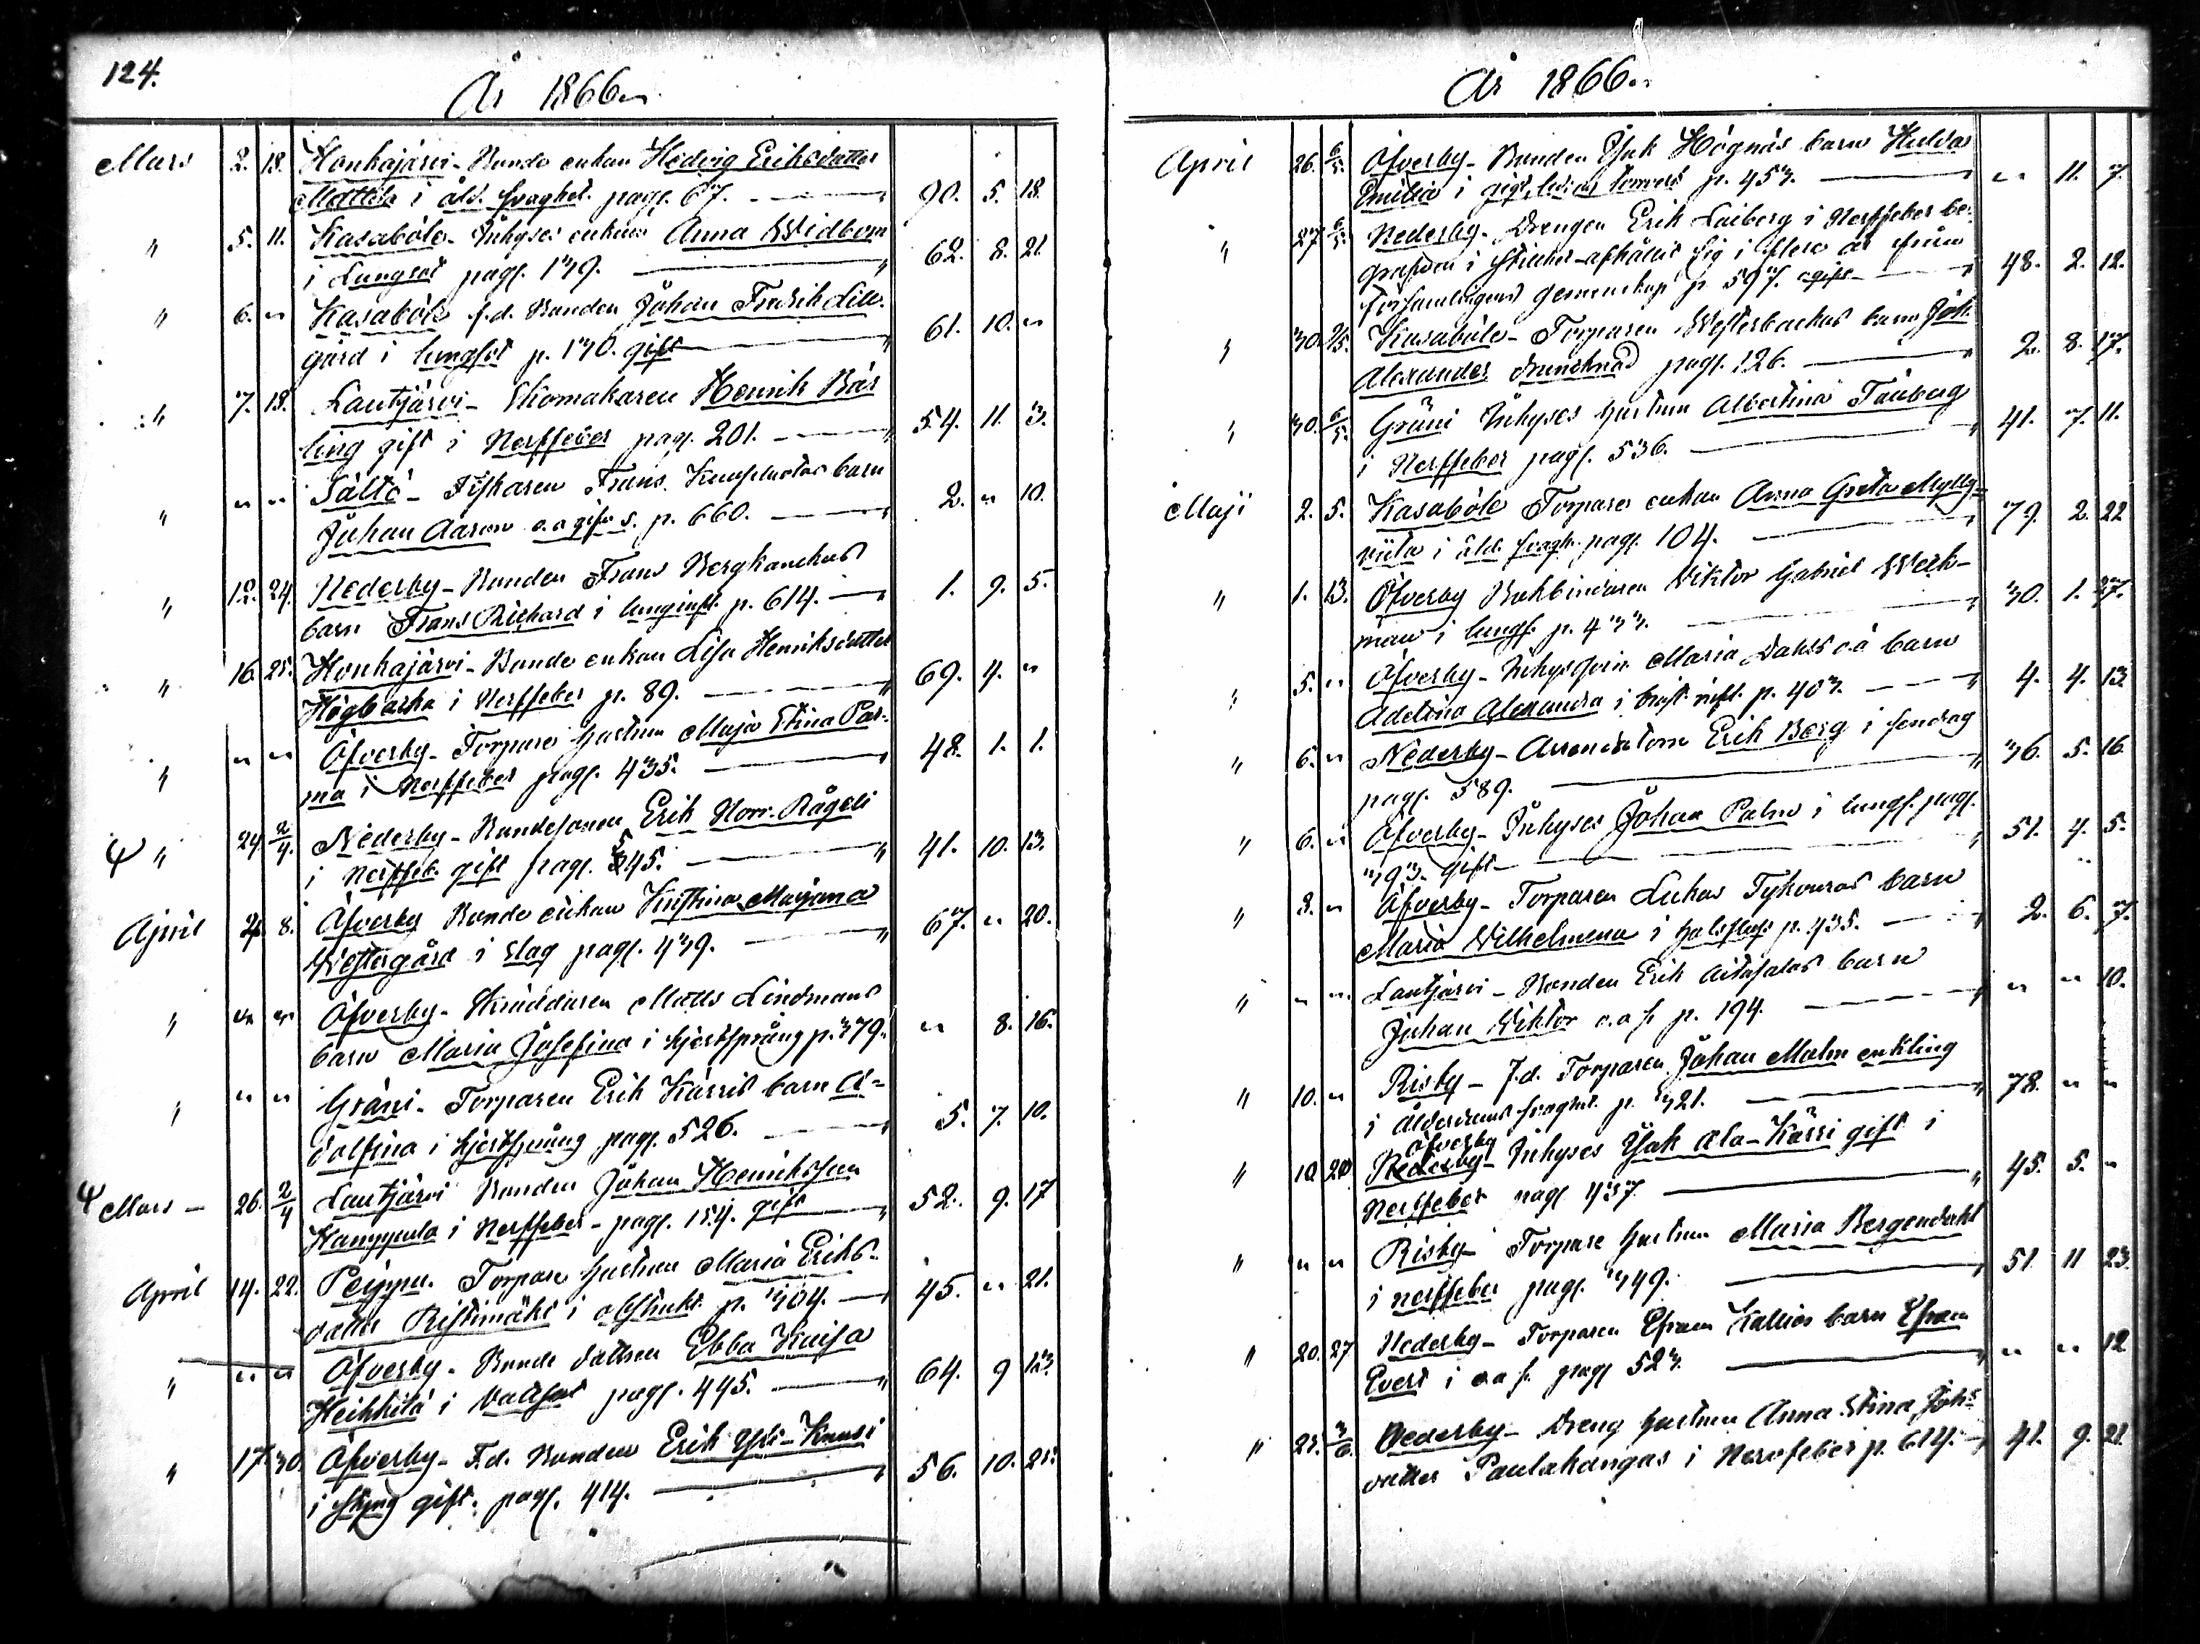 124.
År 1866.
Mars 2. 18. Honkajärvi - Bonde enkan Hedvig Eriksdatter
Mattila i åld. svaghet. pag. 67. 90. 5. 18.
" 5. 11. Kasaböle - Inhyses enkan Anna Widbom
i Lungsot pag. 179. 62. 8. 21.
" 6. " Kasaböle f.d. Bonden Johan Fredrik Lill-
gård i lungsot p. 170. gift 61. 10. "
" 7. 18. Lautjärvi - Skomakaren Henrik Bär
ling gift i Nerffeber pag. 201. 54. 11. 3.
" " " Sältö - Fiskaren Frans barn
Johan Aaron o.a gifn s. p. 660. 2. " 10.
" 12. 24. Nederby - Bonden Frans Bergkanekas
barn Frans Richard i lunginfl. p. 614. 1. 9. 5.
" 16. 25. Honkajärvi - Bonde enkan Lisa Henriksdatter
Högbacka i Nerffeber p. 89. 69. 4. "
" " " Öfverby - Torpare hustrun Maja Stina Par-
ma i Nerffeber pag. 435. 48. 1. 1.
" 24. 2/4. Nederby - Bondesonen Erik Norr-Rågeli
i Nerffeb. gift pag. 545. 41. 10. 13.
April 2. 8. Öfverby Bonde enkan Kristina Marjana
Westergård i slag pag. 479. 67. " 20.
" " " Öfverby - Skräddaren Matts Lindmans
barn Maria Josefina i hjertsprång p. 379. " 8. 16.
" " " Gräni - Torparen Erik Kärris barn A-
dolfina i hjertsprång pag. 526. 5. 7. 10.
Mars - 26. 2/4 Lautjärvi Bonden Johan Henriksson
Kamppula i Nerffeber - pag. 184. gift 52. 9. 17
April 14. 22. Peippu. Torpare hustrun Maria Eriks-
datter Ristimäki i obstrukt. p. 704. 45. " 21.
" " " Öfverby - Bonde dattren Ebba Kaisa
Heikkilä i Vattsot pag. 445. 64. 9 13.
" 17. 30. Öfverby - F.d. Bonden Erik Yli-Knusi
i styng gift. pag. 414. 56. 10. 25.
År 1866.
April 26. 6/5. Öfverby - Bonden Isak Högnäs barn Hulda
Emilia i p. 453. " 11. 7.
" 27 6/5. Nederby - Drengen Erik Laiberg i Nerffeber be-
grafven i stillhet - afhållit sig i flere år från
församlingens gemenskap p. 597. ogift 48. 2. 12.
" 30. Kasaböle - Torparen Westerbackas barn Joh.
Alexander drunknad pag. 126. 2. 8. 17.
" 30. 6/5. Gräni Inhyses hustrun Albertina Tauberg
i Nerffeber pag. 536. 41. 7. 11.
Maji 2. 5. Kasaböle Torpare enkan Anna Greta Mylly-
viita i åld. svagh. pag. 104. 79. 2. 22
" 1. 13. Öfverby Bokbindaren Viktor Gabriel Weck-
man i lungs. p. 30. 1. 27.
" 5. " Öfverby - Inhyspig. Maria Dahls o.ä barn
Adelina Alexandra i bröst infl. p. 403. 4. 4. 13.
" 6. " Nederby - Arrendatorn Erik Berg i sendrag
pag. 589. 36. 5. 16.
" 6. " Öfverby - Inhyses Johan Palm i lungs. pag.
393. gift 51. 4. 5.
" 8. " Öfverby - Torparen Lukas Tykouras barn
Maria Wilhelmina i halsfluss p. 435. 2. 6. 7.
" " " Lautjärvi - Bonden Erik Aitasalos barn
Johan Wiktor o.a s. p. 194. " " 10.
" 10. " Risby - f.d. Torparen Johan Malm enkling
i Ålderdoms svaghet. p. 321. 78. " "
" 10. 20. Öfverby Nederby - Inhyses Isak Ala-Kärri gift i
Nerffeber pag 437. 45. 5. "
" " " Risby - Torpare hustrun Maria Bergendahl
i nerffeber pag. 349. 51. 11 23.
" 20. 27 Nederby - Torparen Efraim Kallios barn Efraim
Evert i o.a s. pag 523. " " 12
" 23. 3/6. Nederby - Dreng hustrun Anna Stina Johs
datter Paulakangas i Nervfeber p. 614. 41. 9. 21.